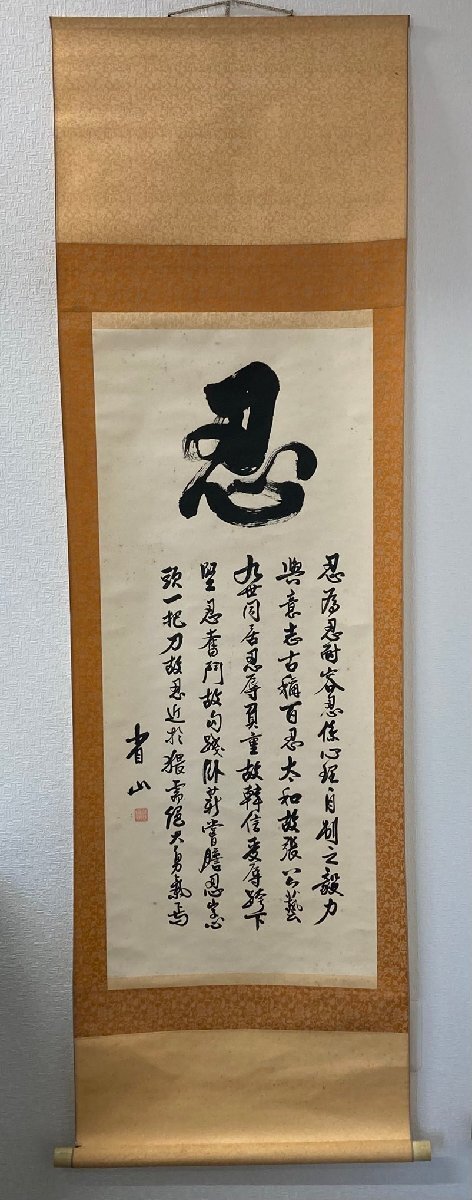 忍
忍為忍耐容忍係心理自制之毅力
與意志古稱百忍太和故張公藝
九世同居忍辱負重故韓信受辱跨下
堅忍奮鬥故勾踐臥薪嘗膽忍字心
頭一把刀故忍近於狠需絕大勇氣焉
省山